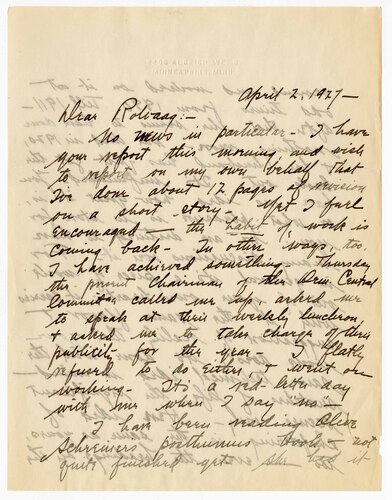 ALDRICH AVE. S.
MINNEAPOLIS, MINN.
April 2, 1927—
Dear Rolvaag:—
No news in particular. I have
your report this morning, and wish
to report on my own behalf that
I've done about 12 pages of revision
on a short story. Yet I feel
encouraged — the habit of work is
coming back. In other ways, too
I have achieved something. Thursday
the Chairman of the Dem. Central
Committee called me up, asked me
to speak at their weekly luncheon,
& asked me to take charge of their
publicity for the year. I flatly
refused to do either, & went on
working. It's a red-letter day
with me when I say no.
I have been reading Olive
Schreiners posthumus book — not
quite finished yet. She had it